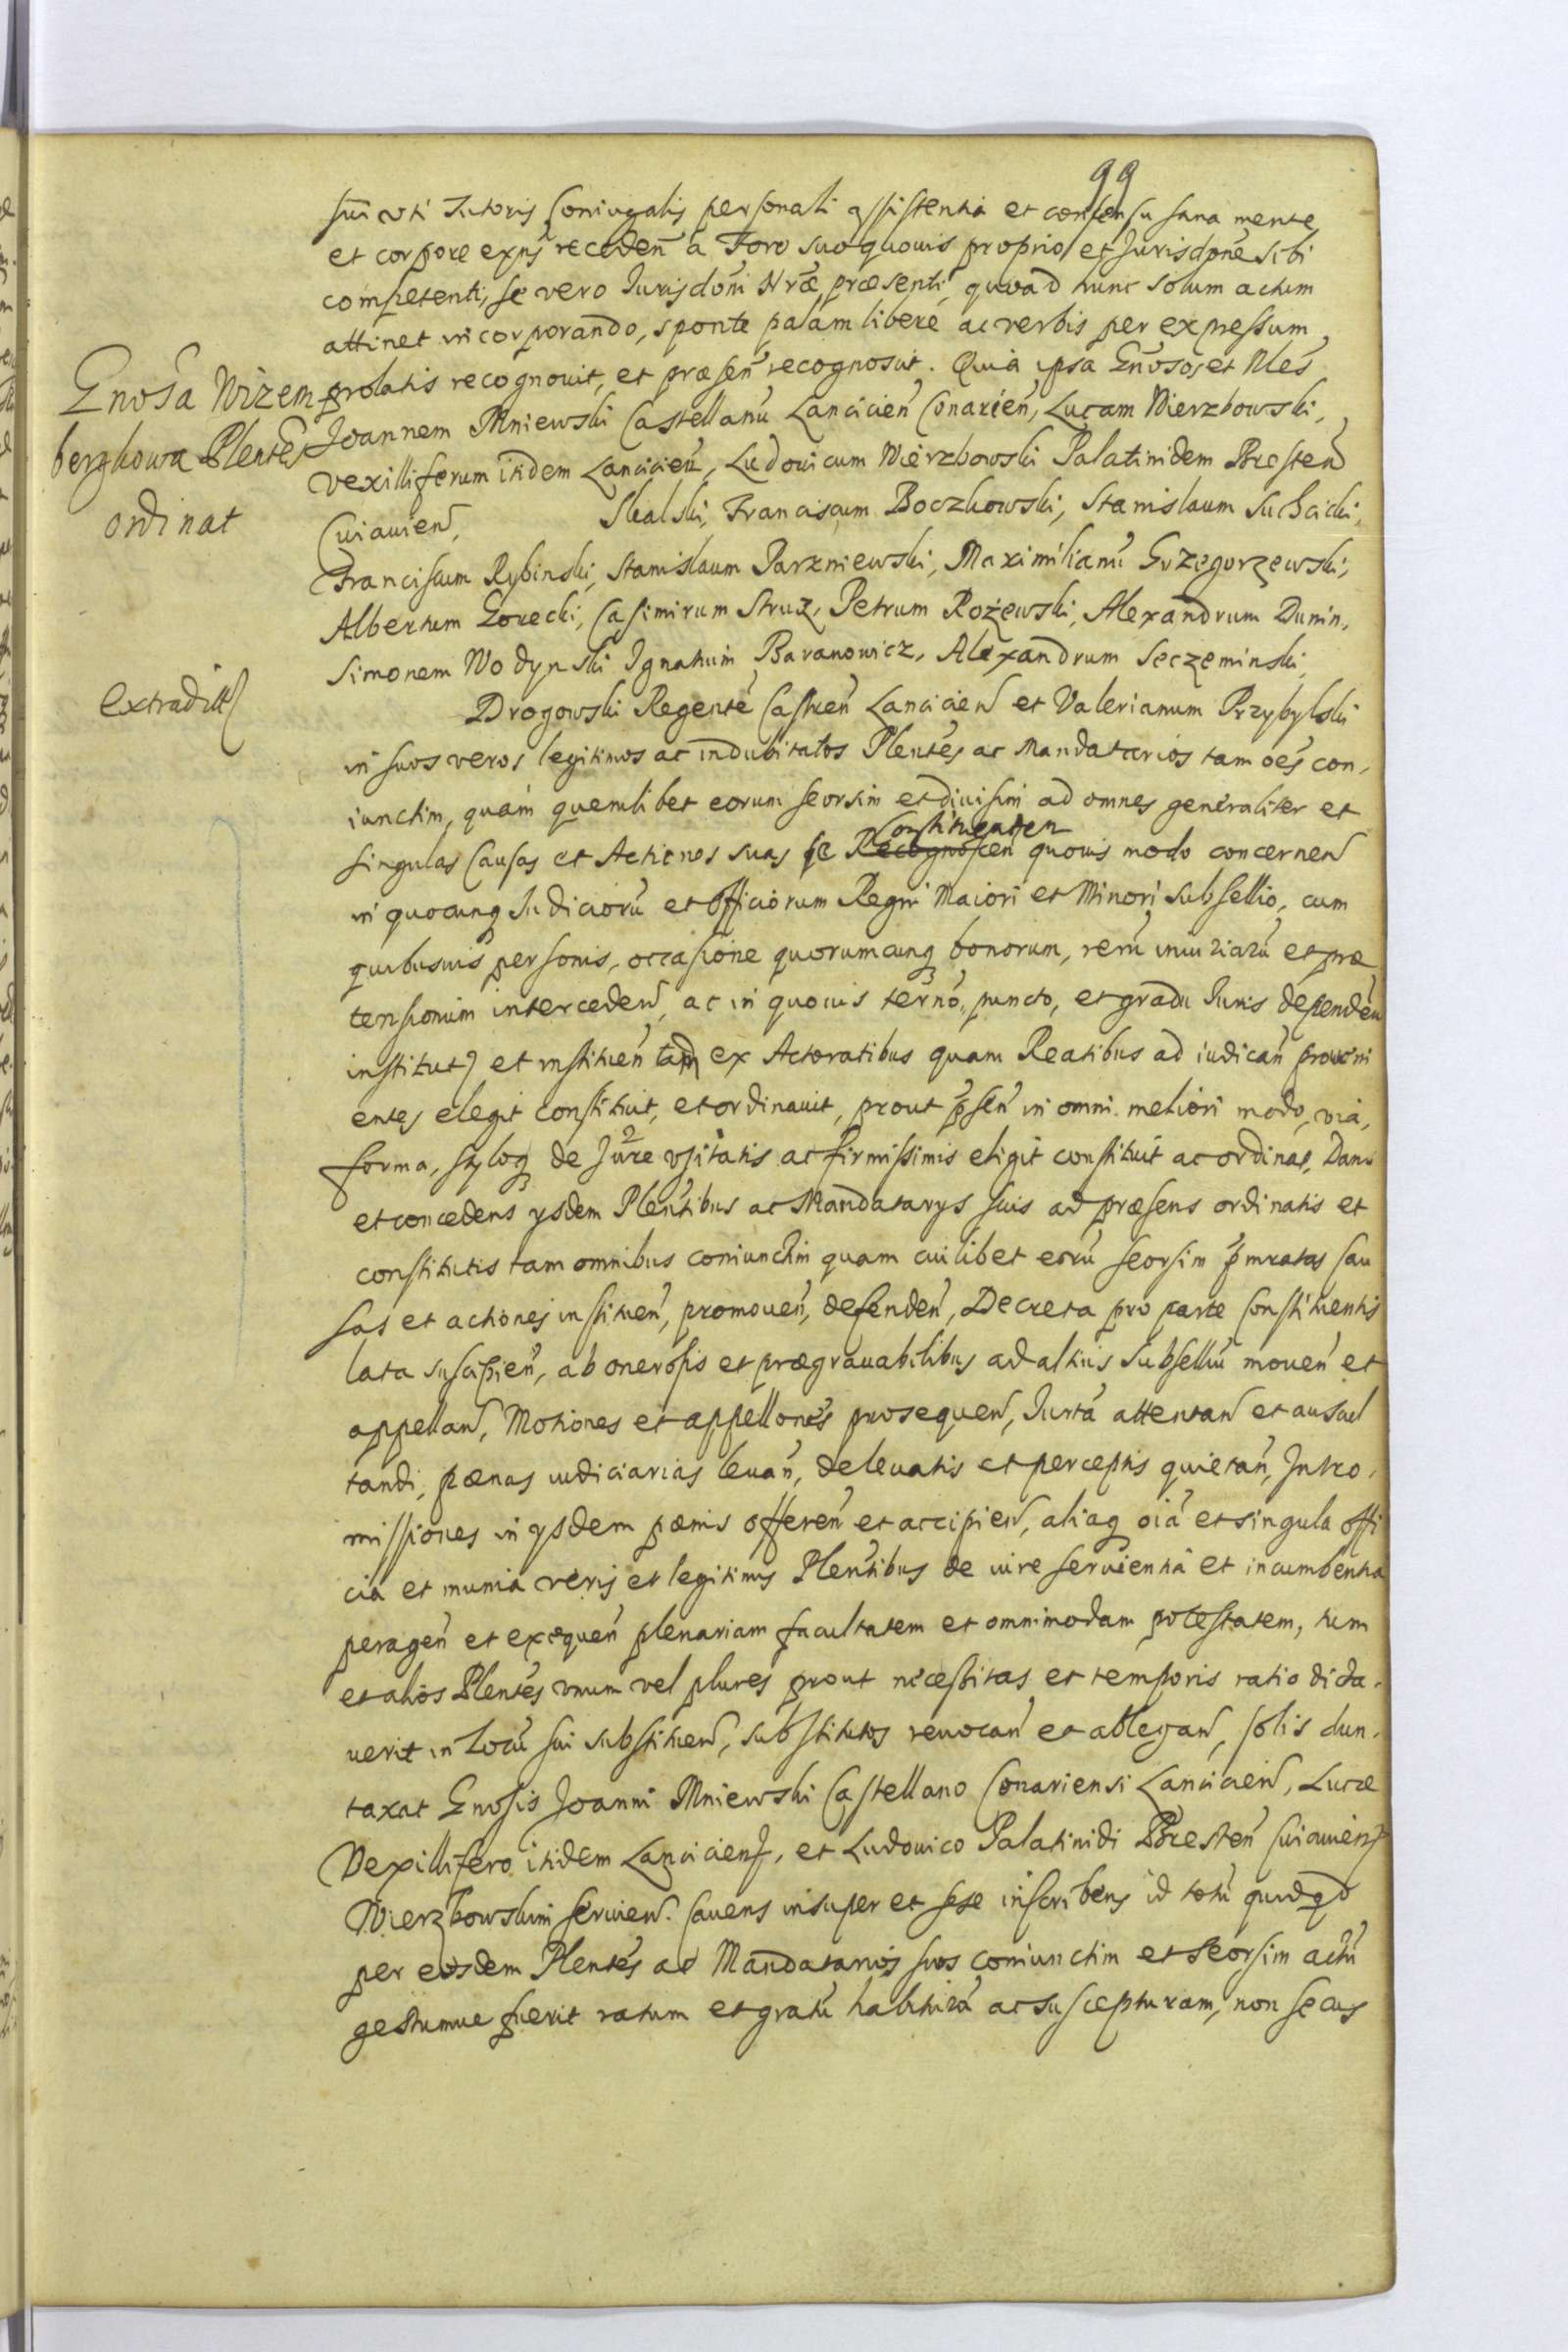 99
sui uti Tutoris Coniugalis personali assistentia et consensu sana mente
et corpore exns receden a Foro suo quovis proprio et Jurisdone sibi
competenti, se vero Jurisdoni Nræ præsenti quoad hunc solum actum
attinet incorporando, sponte palam libere ac verbis per expressum
prolatis recognovit, et præsen recognoscit. Quia ipsa Gnosos et Nles
Joannem Mniewski Castellanu Lancicien Conarien, Lucam Wierzbowski,
vexilliferum itidem Lancicien, Ludovicum Wierzbowski Palatinidem Bresten
Cuiavien, Skalski, Franciscum Boczkowski, Stanislaum Suchcicki,
Franciscum Rybinski, Stanislaum Parzniewski, Maximilianu Grzegorzewski,
Albertum Gorecki, Casimirum Struz, Petrum Rożewski, Alexandrum Dunin,
Simonem Wodynski Ignatium Baranowicz, Alexandrum Seczeminski,
Drogowski Regente Castren Lancicien et Valerianum Przybylski
in suos veros legitimos ac indubitatos Plentes ac Mandatarios tam oes con,
iunctim, quam quemlibet eorum seorsim et divisim ad omnes generaliter et
Constituenten
singulas Causas et Actiones suas se Recognoscen quovis modo concernen
in quocunq Judicioru et Officiorum Regni Maiori et Minori subsellio, cum
quibusvis personis, occasione quorumcunq bonorum, reru iniuriaru et præ
tensionum interceden, ac in quovis termo, puncto, et gradu Juris dependen
institut et instituen tam ex Actoratibus quam Reatibus ad iudican proveni
entes elegit constituit, et ordinavit, prout psen in omni meliori modo, via,
forma, styloq de Jure usitatis ac firmissimis eligit constituit ac ordinat, Dans
et concedens ysdem Plentibus ac Mandatarys suis ad præsens ordinatis et
constitutis tam omnibus coniunctim quam cuilibet eoru seorsim pmratas Cau
sas et actiones instituen, promoven, defenden, Decreta pro parte Constituentis
lata suscipien, ab onerosis et prægravabilibus ad altius Subselliu moven et
appellan, Motiones et appellones prosequen, Jurta attentan et auscul
tandi, pœnas iudiciarias levan, de levatis et perceptis quietan, Intro,
missiones in ysdem pœnis offeren et accipien, aliaq oia et singula offi
cia et munia veris et legitimis Plentibus de iure servientia et incumbentia
peragen et exequen plenariam facultatem et omnimodam potestatem, tum
et alios Plentes unum vel plures prout necessitas et temporis ratio dicta,
verit in Locu sui substituen, substitutos revocan et ablegan, solis dun,
taxat Gnosis Joanni Mniewski Castellano Conariensi Lancicien, Lucæ
Vexillifero itidem Lanciciens, et Ludovico Palatinidi Bresten Cuiaviens
Wierzbowskim servien. Cavens insuper et sese inscribens id totu quidqd
per eosdem Plentes ac Mandatarios suos coniunctim et seorsim actu
gestumve fuerit ratum et gratu habitura ac suscepturam, non secus
Gnosa Wizem
berzkowa Plentes
ordinat
extradit